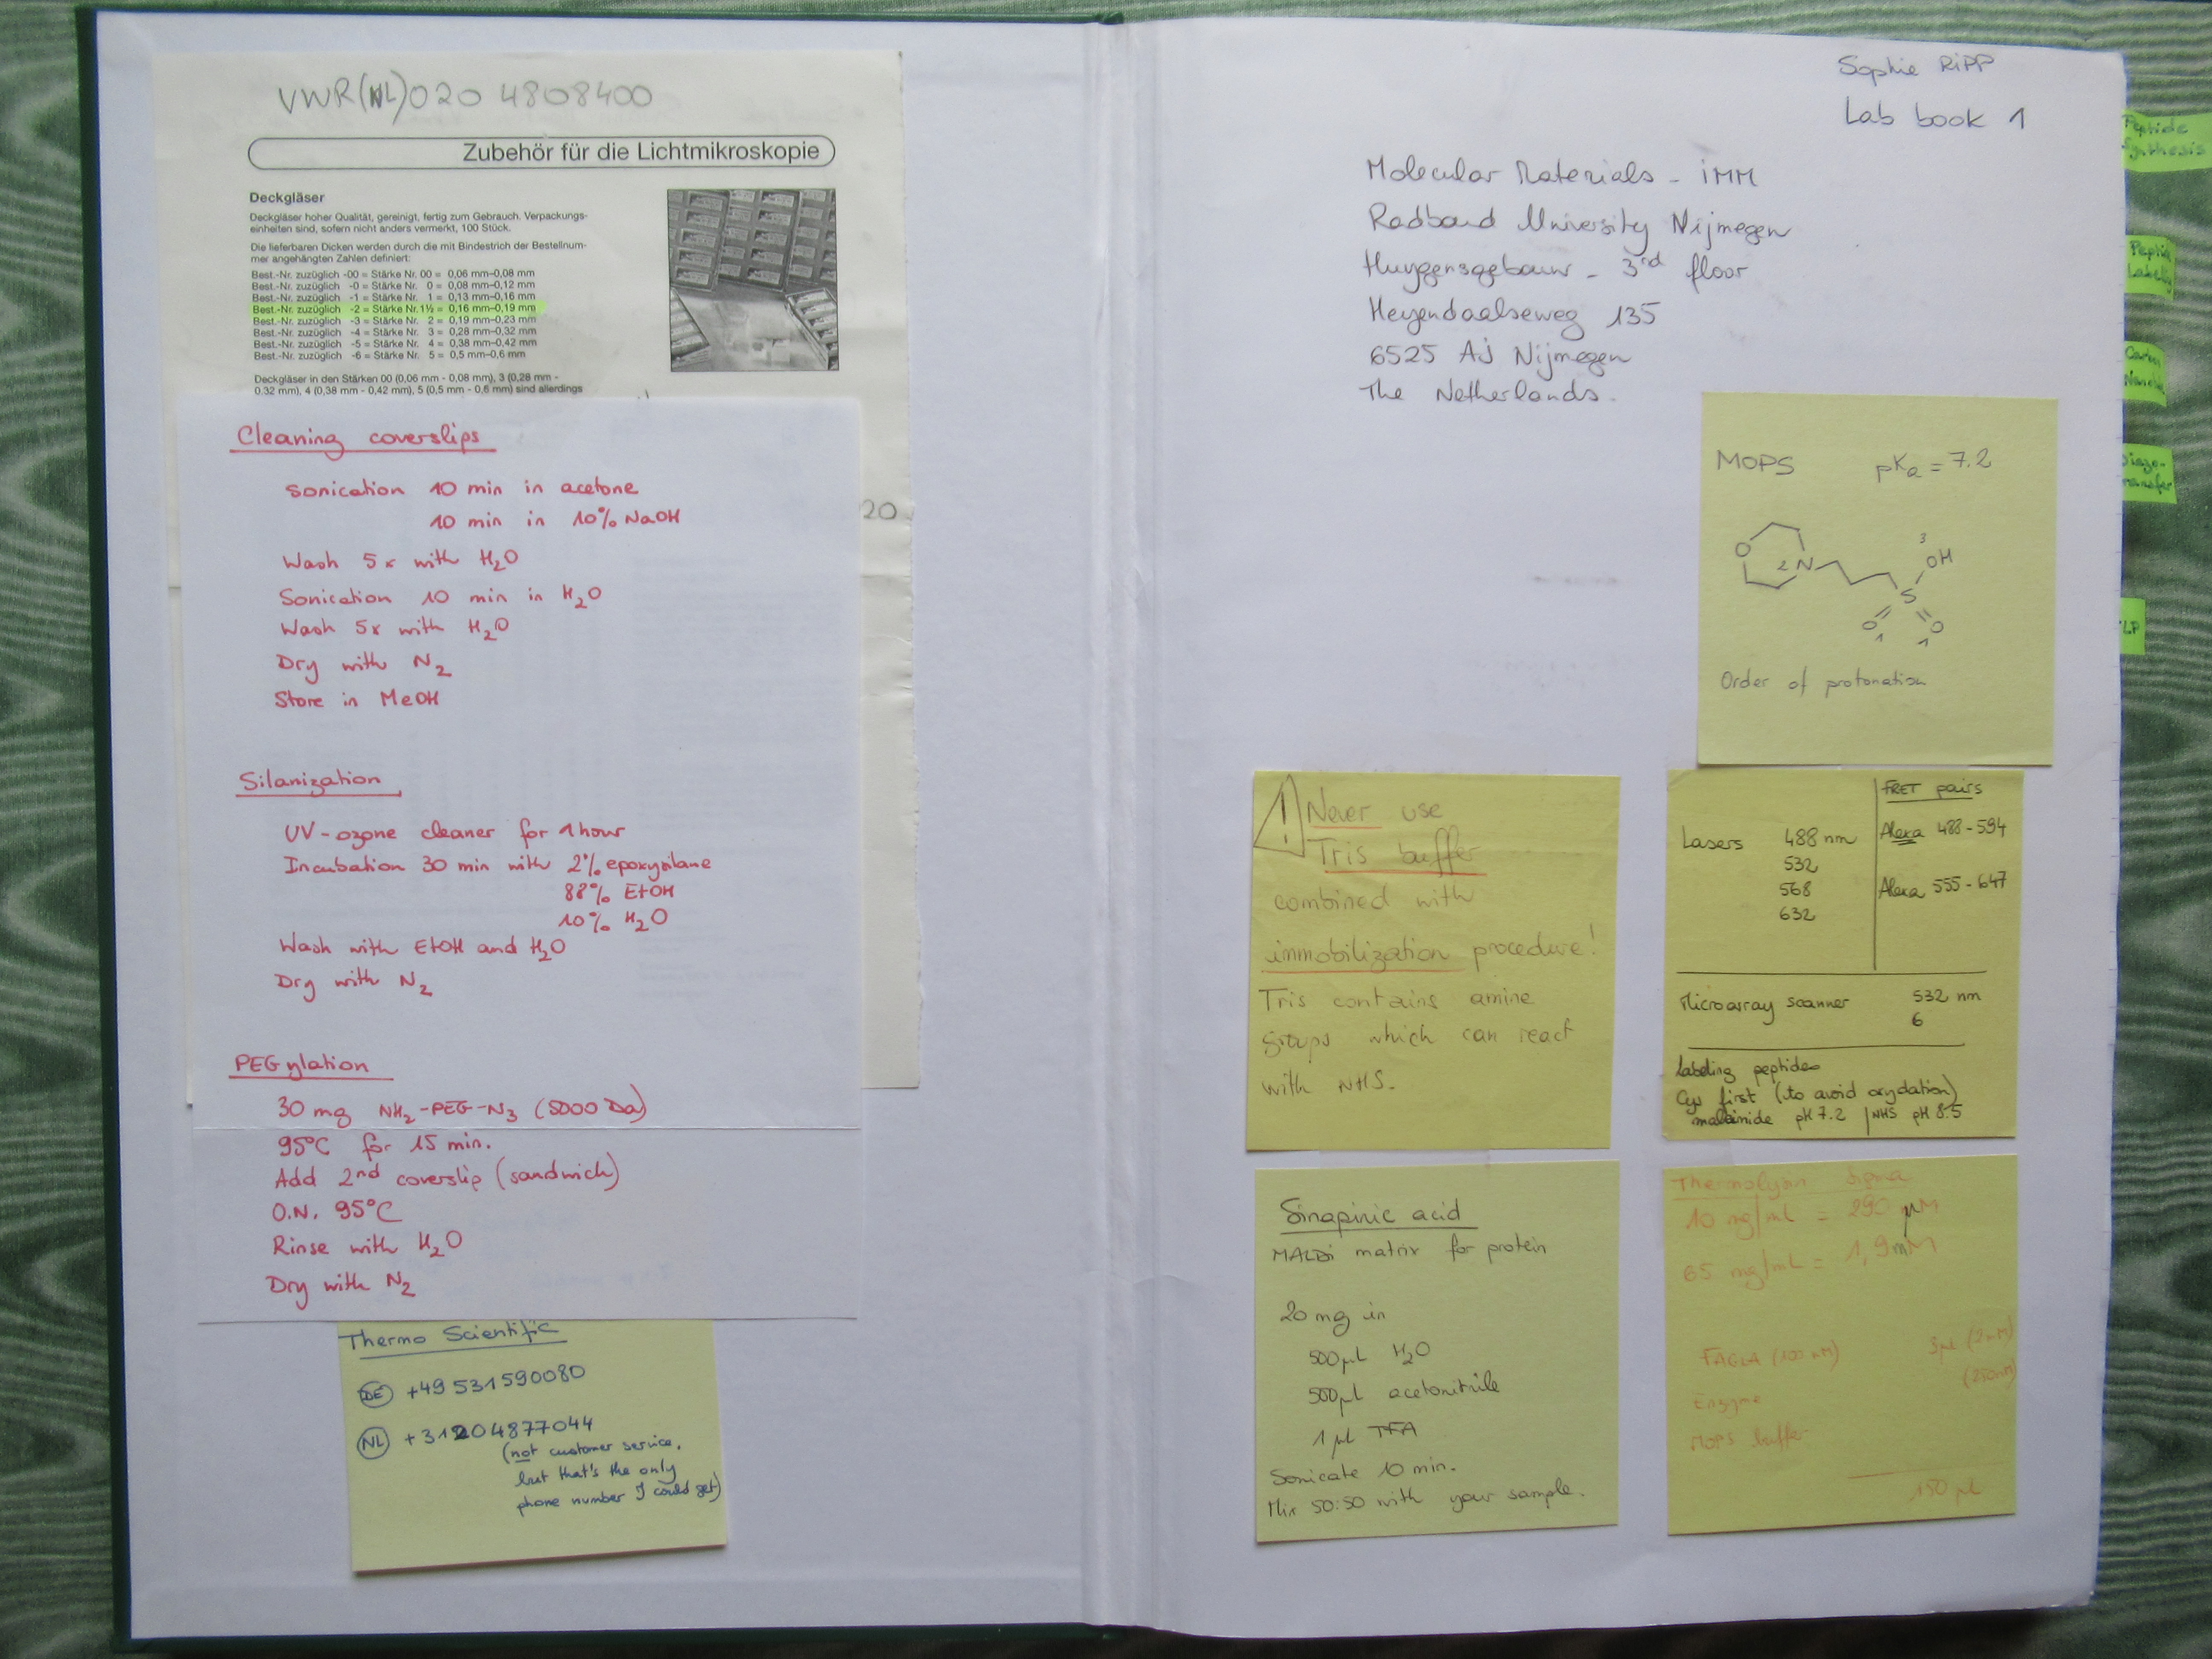 VWR(NL)020 4808400
Zubehör für die Lichtmikroskopie
Deckgläser
Deckgläser hoher Qualität, gereinigt, fertig zum Gebrauch. Verpackungs-
einheiten sind, sofern nicht anders vermerkt, 100 Stück.
Die lieferbaren Dicken werden durch die mit Bindestrich der Bestellnum-
mer angehängten Zahlen definiert:
Best.-Nr. zuzüglich -00 = Stärke Nr. 00 = 0,06 mm–0,08 mm
Best.-Nr. zuzüglich -0 = Stärke Nr. 0 = 0,08 mm–0,12 mm
Best.-Nr. zuzüglich -1 = Stärke Nr. 1 = 0,13 mm–0,16 mm
Best.-Nr. zuzüglich -2 = Stärke Nr. 1½ = 0,16 mm–0,19 mm
Best.-Nr. zuzüglich -3 = Stärke Nr. 2 = 0,19 mm–0,23 mm
Best.-Nr. zuzüglich -4 = Stärke Nr. 3 = 0,28 mm–0,32 mm
Best.-Nr. zuzüglich -5 = Stärke Nr. 4 = 0,38 mm–0,42 mm
Best.-Nr. zuzüglich -6 = Stärke Nr. 5 = 0,5 mm–0,6 mm
Deckgläser in den Stärken 00 (0,06 mm - 0,08 mm), 3 (0,28 mm -
0.32 mm), 4 (0,38 mm - 0,42 mm), 5 (0,5 mm - 0,6 mm) sind allerdings
20
Cleaning coverslips
Sonication 10 min in acetone
10 min in 10% NaOH
Wash 5x with H2O
Sonication 10 min in H2O
Wash 5x with H2O
Dry with N2
Store in MeOH
Silanization
UV-ozone cleaner for 1 hour
Incubation 30 min with 2% epoxysilane
88% EtOH
10% H2O
Wash with EtOH and H2O
Dry with N2
PEGylation
30 mg NH2-PEG-N3 (5000 Da)
95°C for 15 min.
Add 2nd coverslip (sandwich)
O.N. 95°C
Rinse with H2O
Dry with N2
Thermo Scientific
DE +49 531590080
NL +31204877044
(not customer service,
but that's the only
phone number I could get)
Sophie RiPP
Lab book 1
Molecular Materials - iMM
Radboud University Nijmegen
Huygensgebouw - 3rd floor
Heyendaalseweg 135
6525 AJ Nijmegen
The Netherlands.
MOPS pKa = 7.2
3
O OH
2 N
S
O O
1 1
Order of protonation
! Never use
Tris buffer
combined with
immobilization procedure!
Tris contains amine
groups which can react
with NHS.
FRET pairs
Lasers 488 nm Alexa 488-594
532
568 Alexa 555-647
632
Microarray scanner 532 nm
6
Labeling peptides
Cys first (to avoid oxydation)
maleimide pH 7.2 | NHS pH 8.5
Sinapinic acid
MALDi matrix for protein
20 mg in
500 µl H2O
500 µl acetonitrile
1 µl TFA
Sonicate 10 min.
Mix 50:50 with your sample.
Thermolysin Sigma
10 mg/mL = 290 µM
65 mg/mL = 1,9 mM
FAGLA (100 mM) 3µl (2mM)
Enzyme (250nM)
MOPS buffer
150 µl
Peptide
Synthesis
Peptide
Labeling
Diazo-
transfer
LP